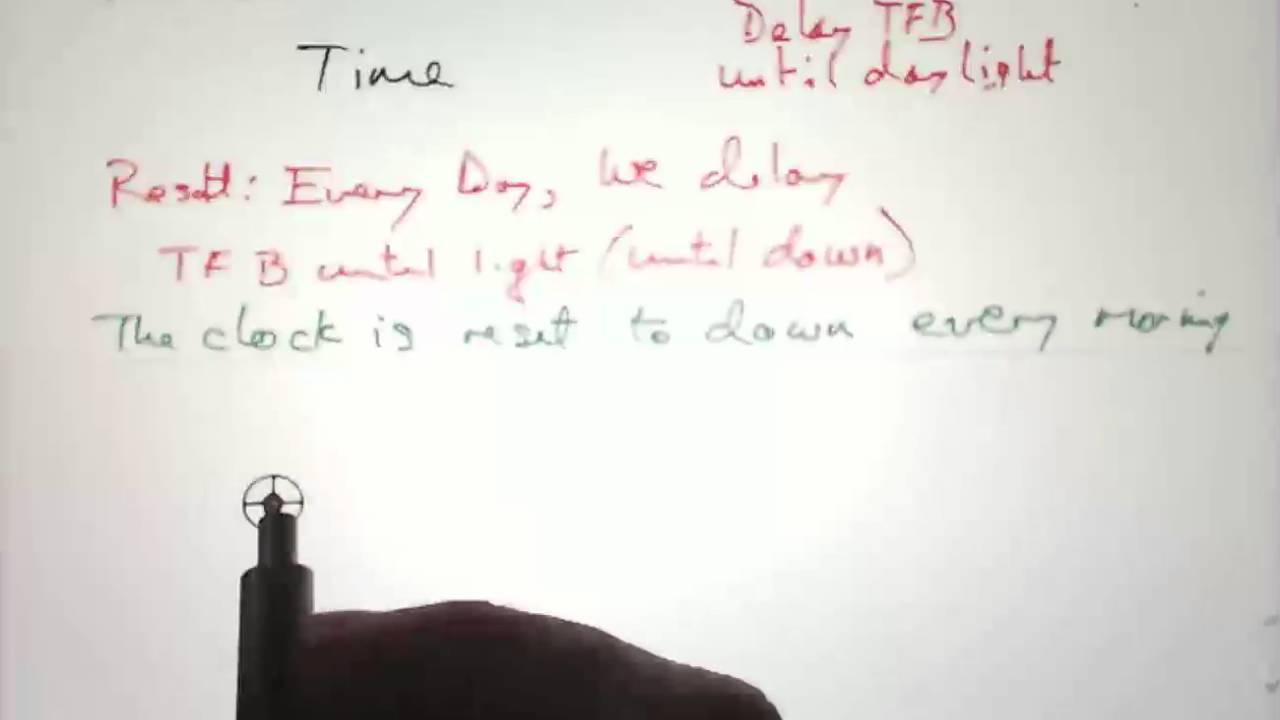 Delay TFB
Time
until daylight
Reset: Every Day, we delay
TFB until light (until down)
The clock is reset to down every morning